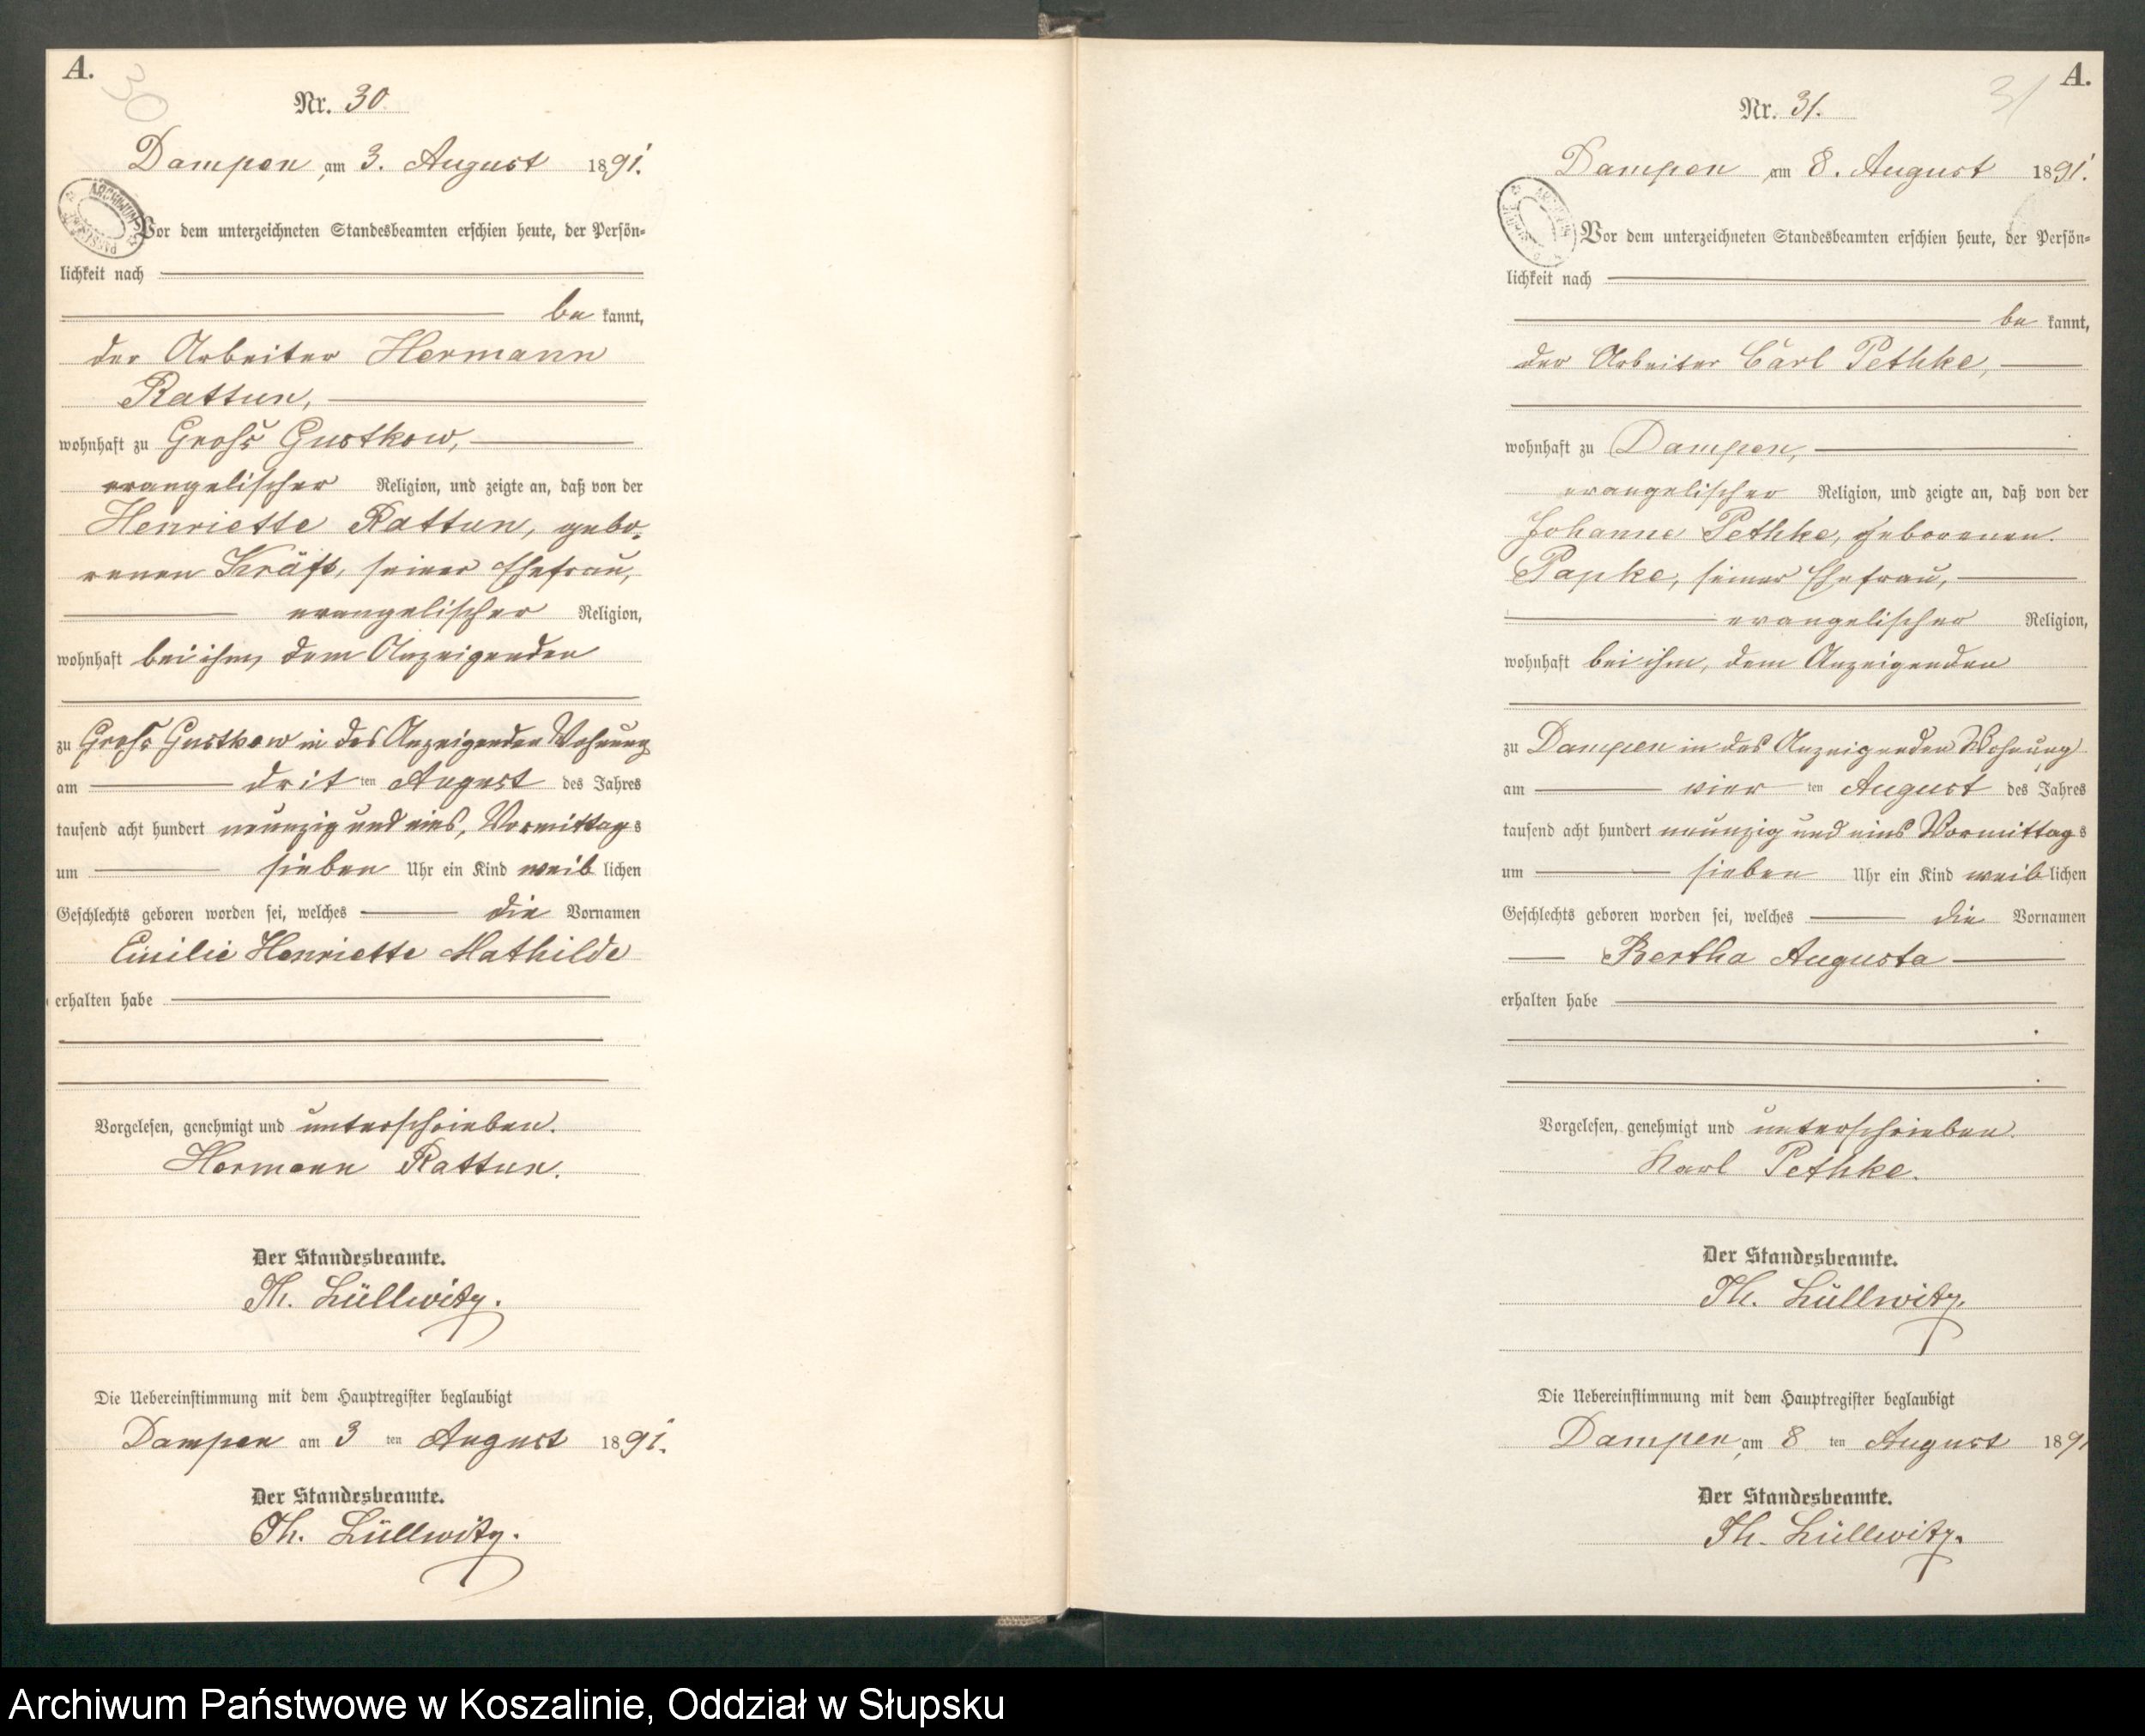 A.
30
Nr. 30
Dampen, am 3. August 1891.
Vor dem unterzeichneten Standesbeamten erschien heute, der Persön-
lichkeit nach
be kannt,
der Arbeiter Hermann
Rattun,
wohnhaft zu Groß Gustkow,
evangelischer Religion, und zeigte an, daß von der
Henriette Rattun, gebo-
renen Kräft, seiner Ehefrau,
evangelischer Religion,
wohnhaft bei ihm, dem Anzeigenden
zu Groß Gustkow in des Anzeigenden Wohnung
am drit ten August des Jahres
tausend acht hundert neunzig und eins, Vormittag s
um sieben Uhr ein Kind weib lichen
Geschlechts geboren worden sei, welches die Vornamen
Emilie Henriette Mathilde
erhalten habe
Vorgelesen, genehmigt und unterschrieben.
Hermann Rattun.
Der Standesbeamte.
Th. Lüllwitz.
Die Uebereinstimmung mit dem Hauptregister beglaubigt
Dampen am 3 ten August 1891.
Der Standesbeamte.
Th. Lüllwitz.
A.
31
Nr. 31.
Dampen am 8. August 1891.
Vor dem unterzeichneten Standesbeamten erschien heute, der Persön-
lichkeit nach
be kannt,
der Arbeiter Carl Pethke,
wohnhaft zu Dampen,
evangelischer Religion, und zeigte an, daß von der
Johanne Pethke, geborenen
Papke, seiner Ehefrau,
evangelischer Religion,
wohnhaft bei ihm, dem Anzeigenden
zu Dampen in des Anzeigenden Wohnung
am vier ten August des Jahres
tausend acht hundert neunzig und eins Vormittag s
um sieben Uhr ein Kind weib lichen
Geschlechts geboren worden sei, welches die Vornamen
Bertha Augusta
erhalten habe
Vorgelesen, genehmigt und unterschrieben.
Karl Pethke.
Der Standesbeamte.
Th. Lüllwitz.
Die Uebereinstimmung mit dem Hauptregister beglaubigt
Dampen, am 8 ten August 1891
Der Standesbeamte.
Th. Lüllwitz.
Archiwum Państwowe w Koszalinie, Oddział w Słupsku